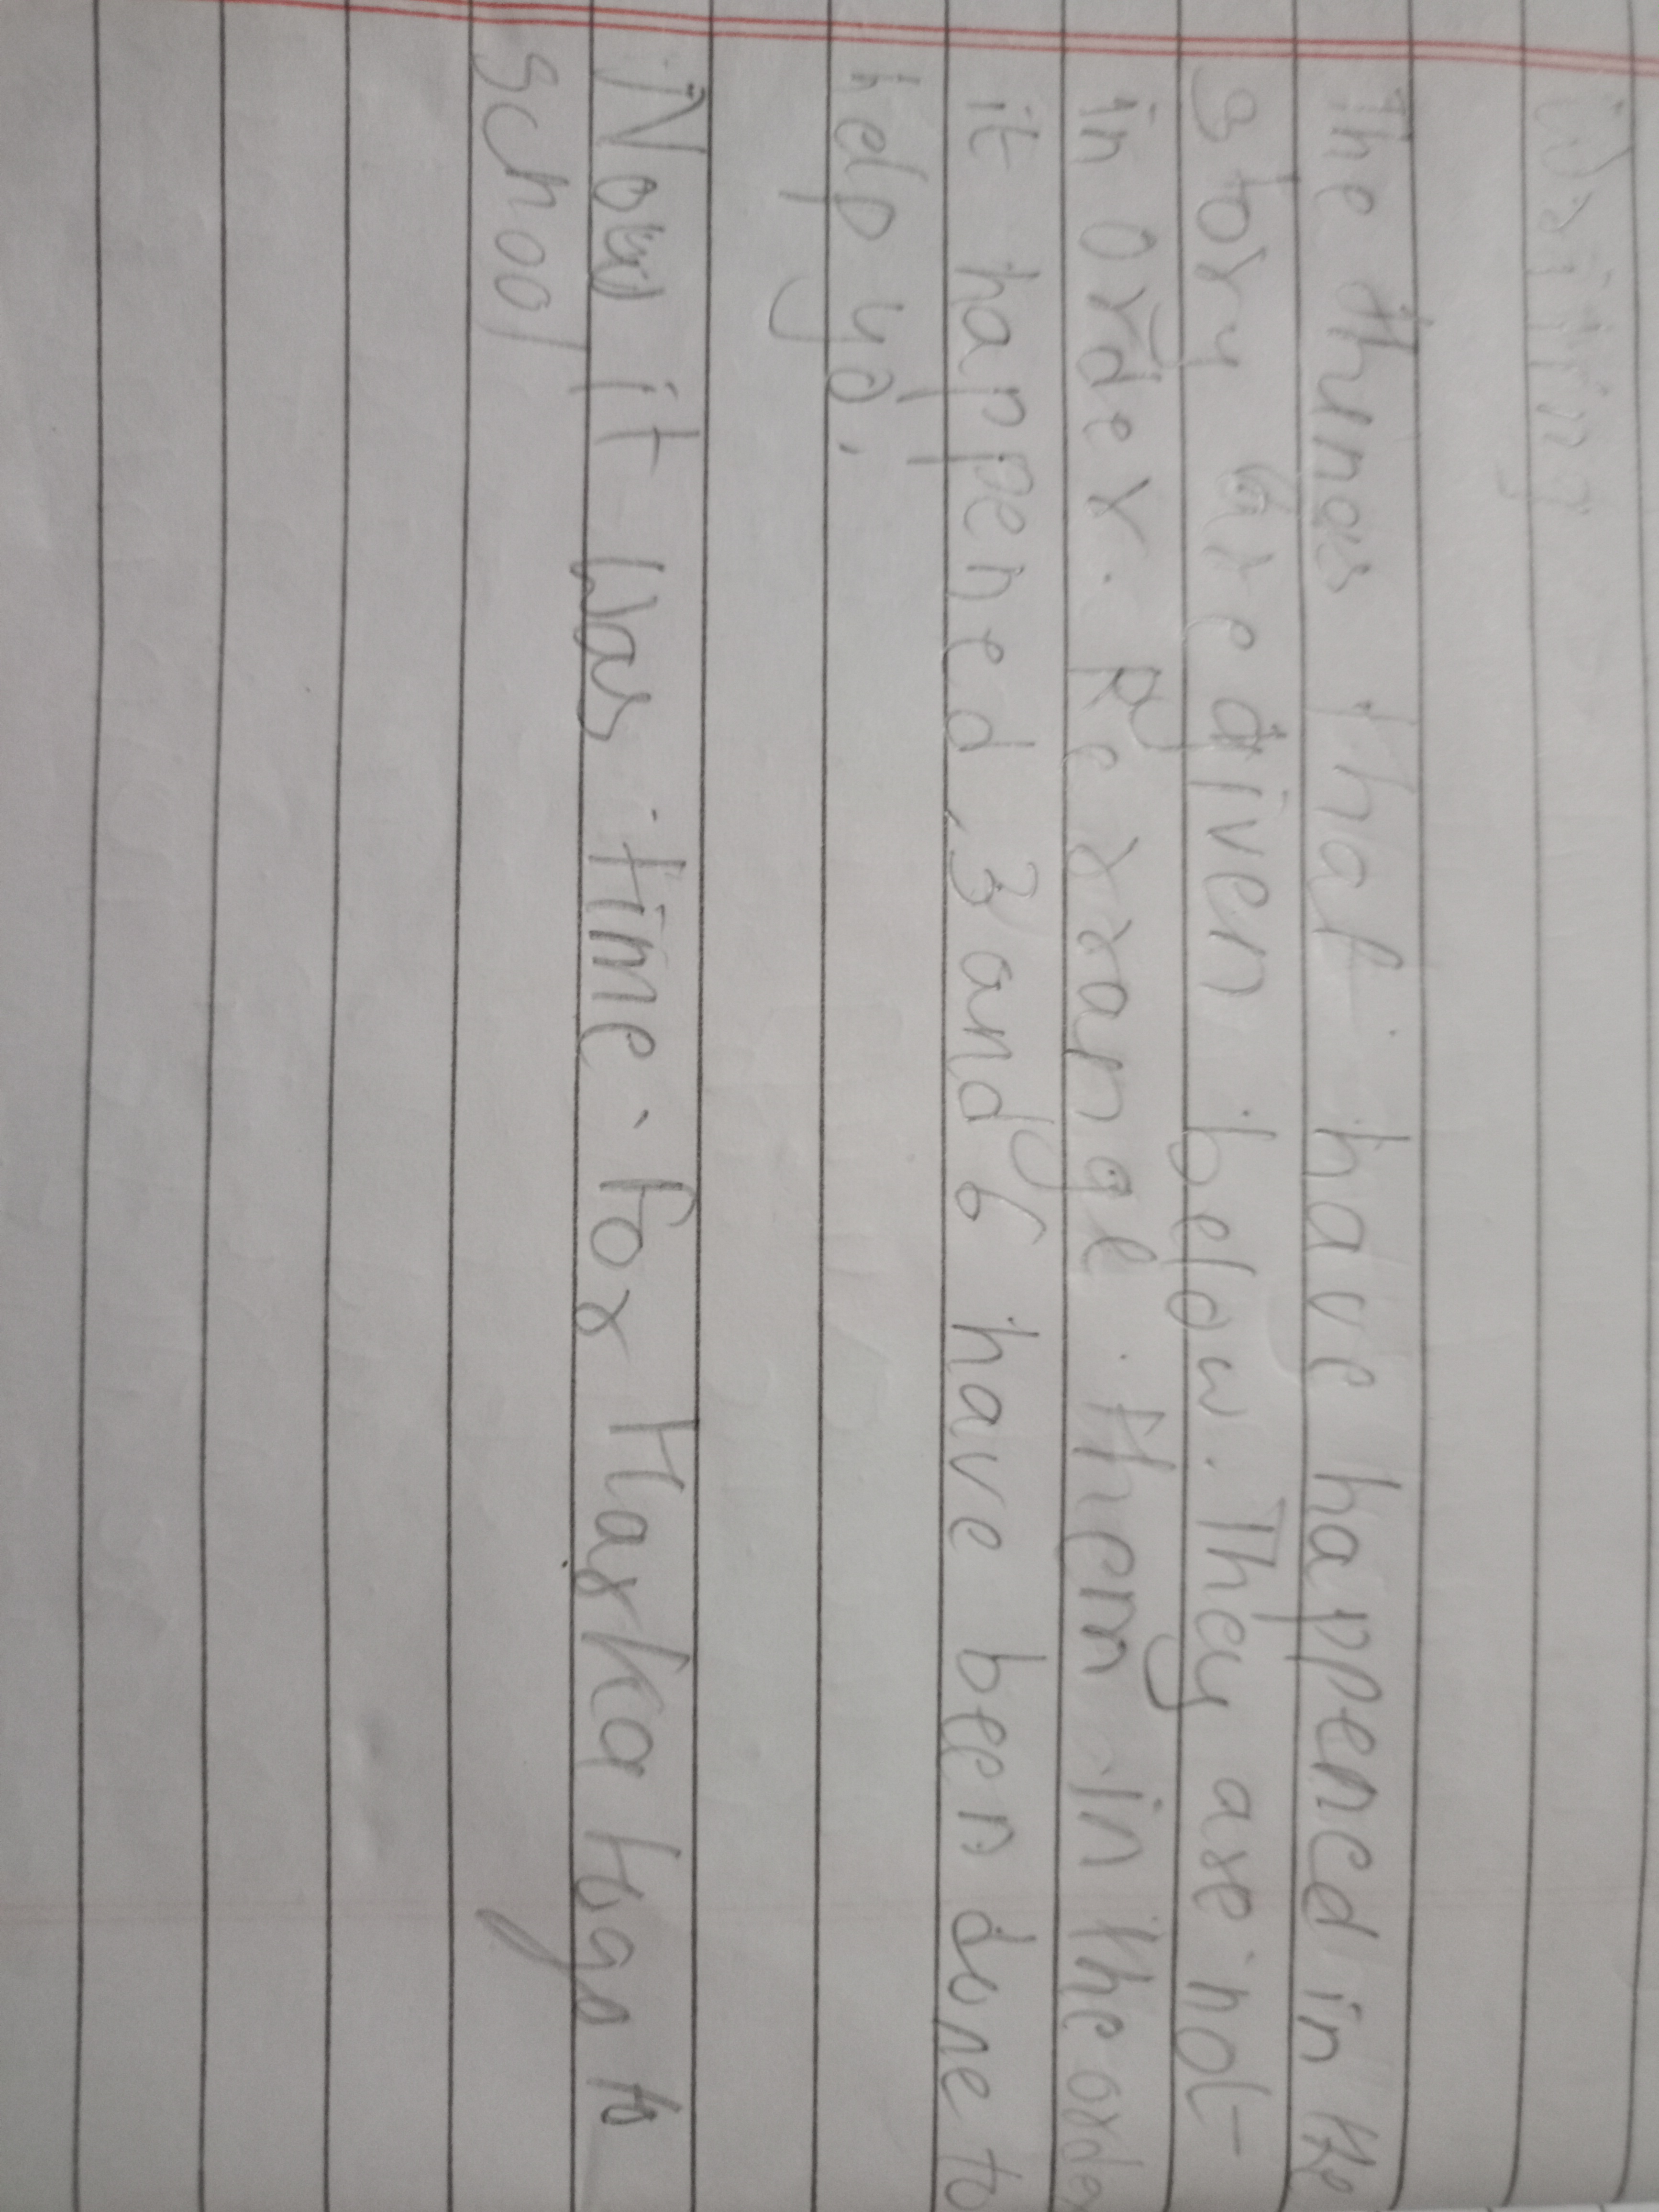 Writing
The things that have happened in the
story are given below. They are not
in order. Rerrange them in the order
it happened, 3 and 6 have been done to
help yo.
Now it was time for Harka to go to
school